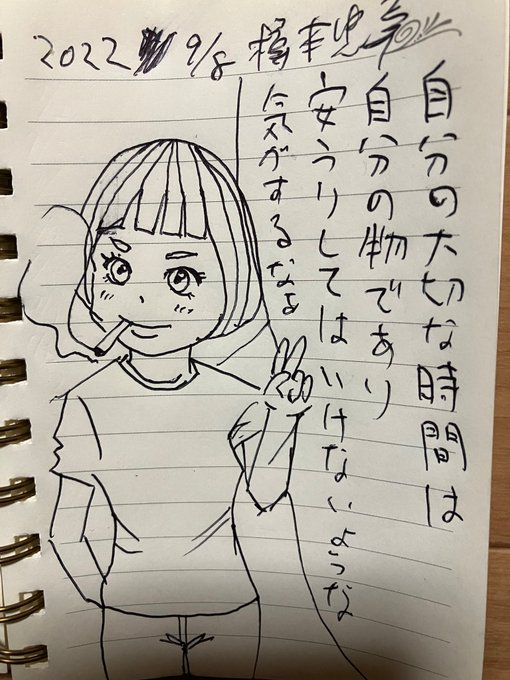 2022 9/8
自分の大切な時間は
自分の物であり
安うりしてはいけないような
気がするなぁ